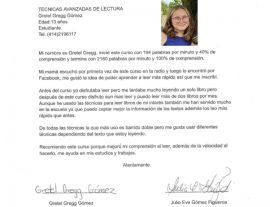 TECNICAS AVANZADAS DE LECTURA
Gretel Gregg Gómez
Edad:13 años
Estudiante.
Tel. (414)2196117
Mi nombre es Gretel Gregg, inicié este curso con 194 palabras por minuto y 40% de
comprensión y termine con 2160 palabras por minuto y 100% de comprensión.
Mi mamá escuchó por primera vez de este curso en la radio y luego lo encontró por
Facebook, me gustó la idea de poder aprender a leer más rápido así que me inscribí.
Antes del curso yo disfrutaba leer pero me tardaba mucho leyendo un solo libro pero
después de este curso disfruto aun mas leer y puedo leer más de dos libros por mes.
Aunque he usado las técnicas para leer libros de mi interés también me han servido mucho
en la escuela ya que puedo captar mejor la información de los textos además los leo más
rápido que antes.
De todas las técnicas la que más uso es barrido doble pero me gusta usar diferentes
técnicas dependiendo del texto que estoy leyendo.
Recomiendo este curso porque mejoró mi comprensión al leer, además de la velocidad al
hacerlo, me ayuda en mis estudios y trabajos.
Atentamente.
Gretel Gregg Gómez
Gretel Gregg Gómez
Julio Eve Gómez Figueroa